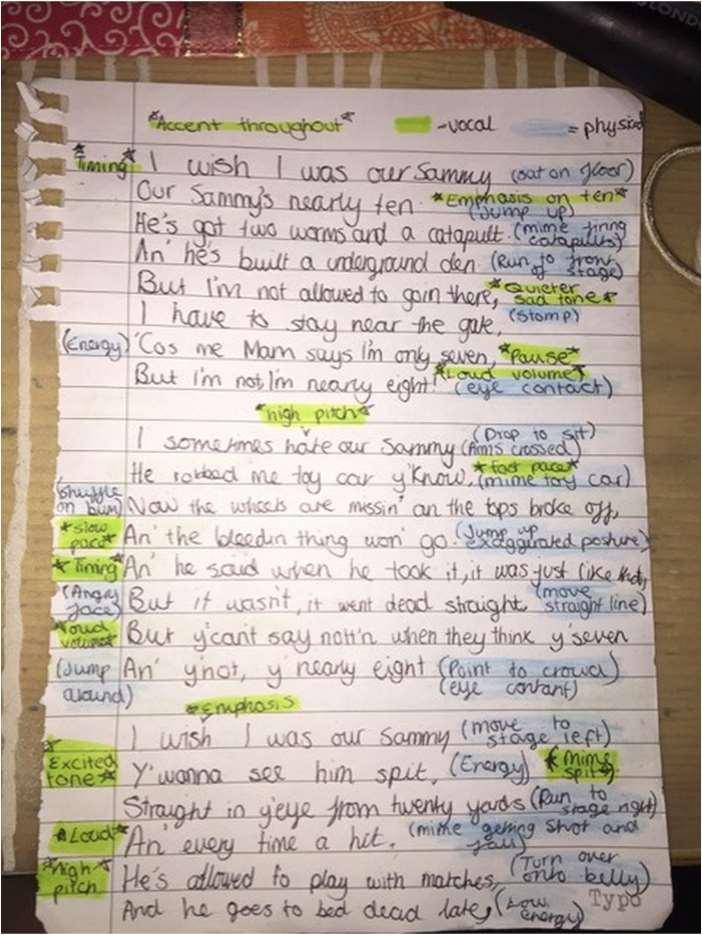 LONDO
*Accent throughout* -vocal = physical
*Timing* I wish I was our Sammy (out on floor)
Our Sammy's nearly ten. *Emphasis on ten*
(Jump up)
He's got two worms and a catapult. (mime firing catapults)
An' he's built a underground den (Run to front of stage)
But I'm not allowed to go in there, *Quieter sad tone*
I have to stay near the gate, (Stomp)
(Energy) 'Cos me Mam says I'm only seven, *Pause*
*Loud volume*
But I'm not, I'm nearly eight! (eye contact)
*high pitch*
I sometimes hate our Sammy (Drop to sit) (Arms crossed)
He robbed me toy car y'know, *fast pace* (mime toy car)
(shuffle on bum) Now the wheels are missin' an the tops broke off,
*slow pace* An' the bleedin thing won' go. (Jump up exaggurated posture)
*Timing* An' he said when he took it, it was just like that,
(Angry face) But it wasn't, it went dead straight (move straight line)
*loud volume* But y'cant say nott'n when they think y'seven
(Jump around) An' y'not, y'nearly eight (Point to crowd)
(eye contant)
*Emphasis
I wish I was our Sammy (move to stage left)
Excited tone* Y'wanna see him spit, (Energy) *Mime spit*
Straight in y'eye from twenty yards (Run to stage right)
*Loud* An' every time a hit. (mime getting shot and fall)
*High pitch He's allowed to play with matches, (Turn over onto belly)
And he goes to bed dead late, (Low energy)
Typo